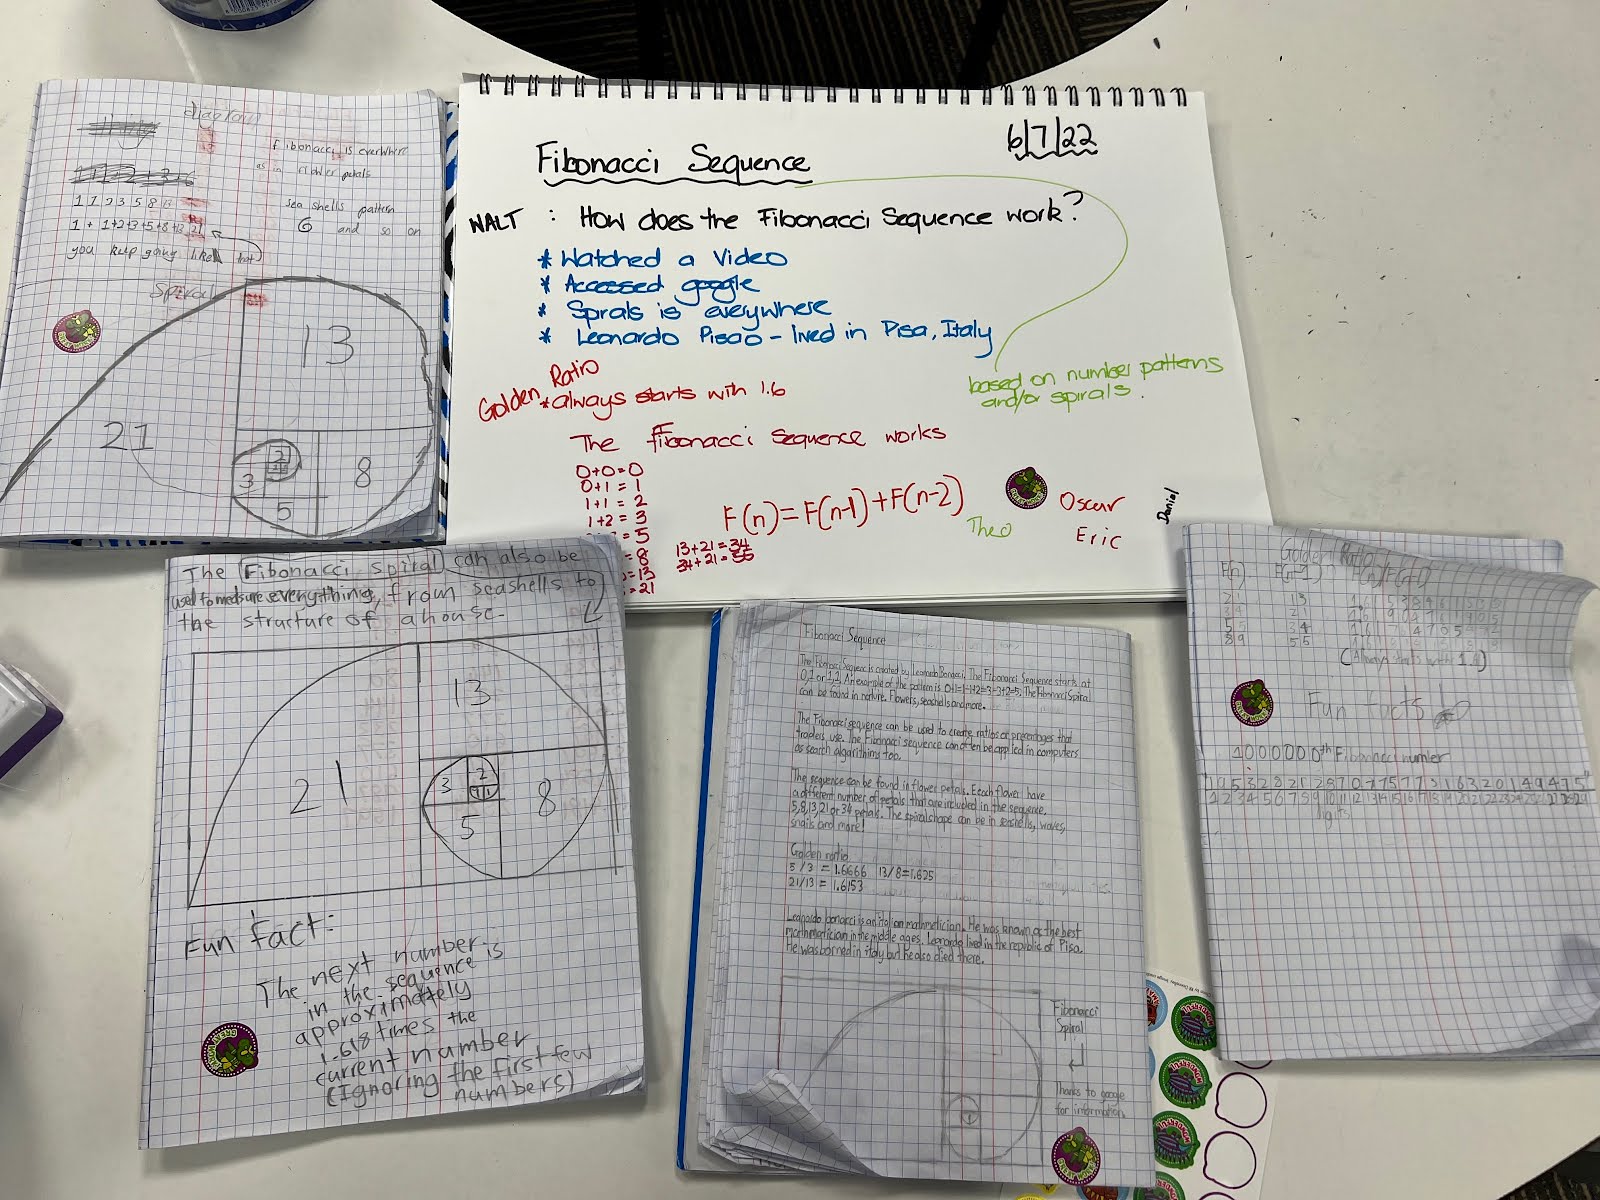 diagram
Fibonacci is everwhere
as in flower petals
sea shells pattern
6 and so on
1 1 2 3 5 8 13
1 + 1+2+3+5+8+13 21
you kep going like that
Spiral
13
21
2
3
8
5
6/7/22
Fibonacci Sequence
WALT : How does the Fibonacci Sequence work?
* Watched a Video
* Accessed google
* Spirals is everywhere
* Leonardo Pisao - lived in Pisa, Italy
based on number patterns
and/or spirals.
Golden Ratio
*always starts with 1.6
The Fibonacci Sequence works
0+0=0
0+1=1
1+1=2
1+2=3
=5
=8
=13
=21
13+21=34
34+21=55
F(n)=F(n-1)+F(n-2)
Theo
Oscar
Eric
Daniel
The Fibonacci spiral can also be
used to measure everything, from seashells to
the structure of a house-
13
21
3
2
1 1
8
5
Fun fact:
The next number
in the sequence is
approximately
1.618 times the
current number
(Ignoring the first few
numbers)
GREAT WORK
Fibonacci Sequence
The Fibonacci Sequenc is created by Leonardo Bonacci. The Fibonacci Sequence starts at
0,1 or 1,2. An example of the pattern is 0+1=1+1=2=3=3+2=5. The Fibonacci Spiral
can be found in nature. Flowers, seashells and more.
The Fibonacci sequence can be used to create ratios or precentages that
traders use. The Fibonacci sequence can often be applied in computers
as search algorithms too.
The sequence can be found in flower petals. Eeach flower have
a different number of petals that are included in the sequence.
5,8,13,21 or 34 petals. The spiral shape can be in seashells, waves,
snails and more!
Golden ratio
5/3 = 1.6666 13/8=1.625
21/13 = 1.6153
Leonardo bonacci is an italian mathmetician. He was known as the best
mathmatician in the middle ages. Leonardo lived in the republic of Pisa.
He was borned in italy but he also died there.
Fibonacci
Spiral
Thanks to google
for information
Golden Ratio
F(n) F(n-1)
21 13
34 21
55 34
89 55
(Always starts with 1.6)
Fun facts
1000000th Fibonacci number
digits
WONDERFUL
WONDERFUL
WONDERFUL